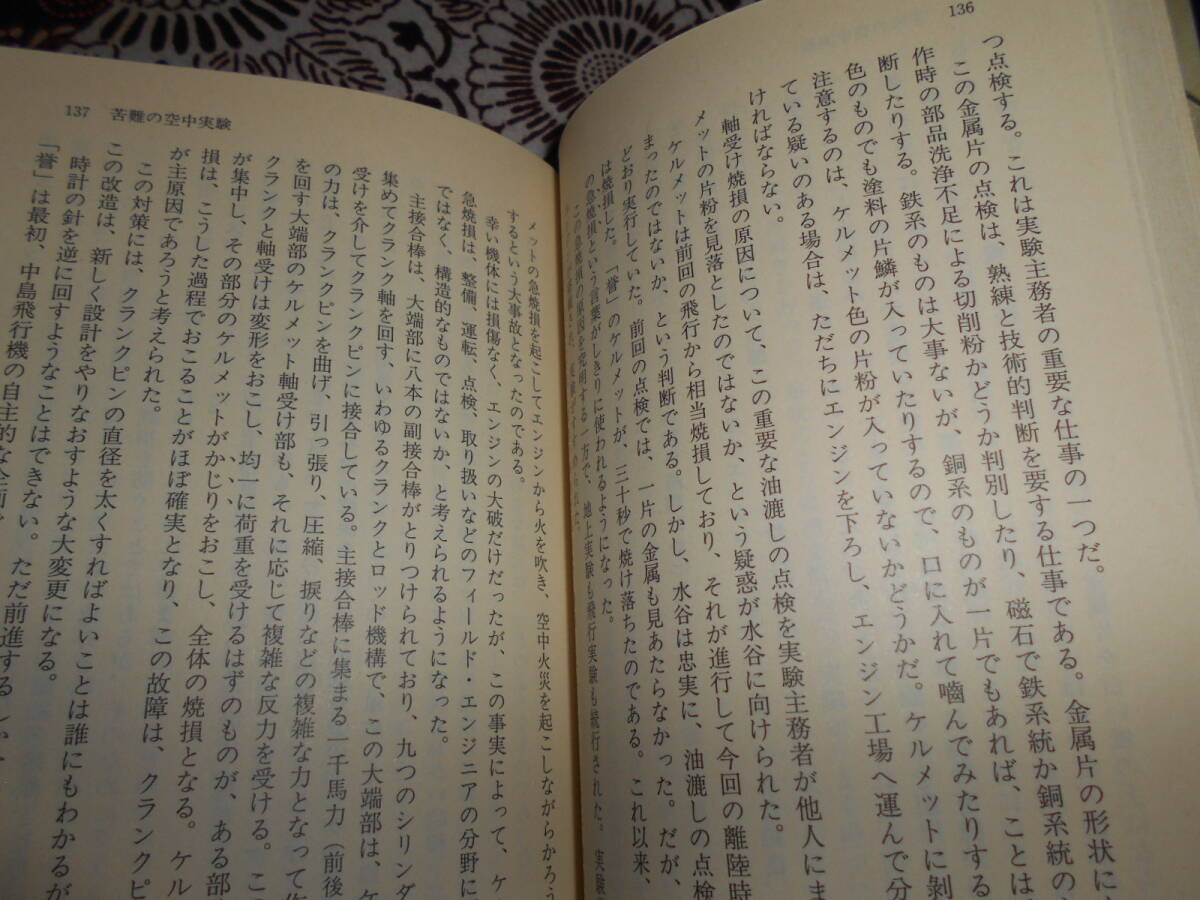 136
つ点検する。これは実験主務者の重要な仕事の一つだ。
この金属片の点検は、熟練と技術的判断を要する仕事である。金属片の形状に
作時の部品洗浄不足による切削粉かどうか判別したり、磁石で鉄系統か銅系統の
断したりする。鉄系のものは大事ないが、銅系のものが一片でもあれば、ことは
色のものでも塗料の片鱗が入っていたりするので、口に入れて嚙んでみたりする
注意するのは、ケルメット色の片粉が入っていないかどうかだ。ケルメットに剥
ている疑いのある場合は、ただちにエンジンを下ろし、エンジン工場へ運んで分
ければならない。
軸受け焼損の原因について、この重要な油漉しの点検を実験主務者が他人にま
メットの片粉を見落としたのではないか、という疑惑が水谷に向けられた。
ケルメットは前回の飛行から相当焼損しており、それが進行して今回の離陸時
まったのではないか、という判断である。しかし、水谷は忠実に、油漉しの点検
どおり実行していた。前回の点検では、一片の金属も見あたらなかった。だが、
は焼損した。「誉」のケルメットが、三十秒で焼け落ちたのである。これ以来、
の急焼損という言葉がしきりに使われるようになった。
この急焼損の原因を究明する一方で、地上実験も飛行実験も続行された。実験
137 苦難の空中実験
メットの急焼損を起こしてエンジンから火を吹き、空中火災を起こしながらかろう
するという大事故となったのである。
幸い機体には損傷なく、エンジンの大破だけだったが、この事実によって、ケ
急焼損は、整備、運転、点検、取り扱いなどのフィールド・エンジニアの分野に
ではなく、構造的なものではないか、と考えられるようになった。
主接合棒は、大端部に八本の副接合棒がとりつけられており、九つのシリンダ
集めてクランク軸を回す、いわゆるクランクとロッド機構で、この大端部は、ケ
受けを介してクランクピンに接合している。主接合棒に集まる一千馬力(前後
の力は、クランクピンを曲げ、引っ張り、圧縮、捩りなどの複雑な力となって作
を回す大端部のケルメット軸受け部も、それに応じて複雑な反力を受ける。こ
クランクと軸受けは変形をおこし、均一に荷重を受けるはずのものが、ある部
が集中し、その部分のケルメットがかじりをおこし、全体の焼損となる。ケル
損は、こうした過程でおこることがほぼ確実となり、この故障は、クランクピ
が主原因であろうと考えられた。
この対策には、クランクピンの直径を太くすればよいことは誰にもわかるが
この改造は、新しく設計をやりなおすような大変更になる。
時計の針を逆に回すようなことはできない。ただ前進する
「誉」は最初、中島飛行機の自主的な